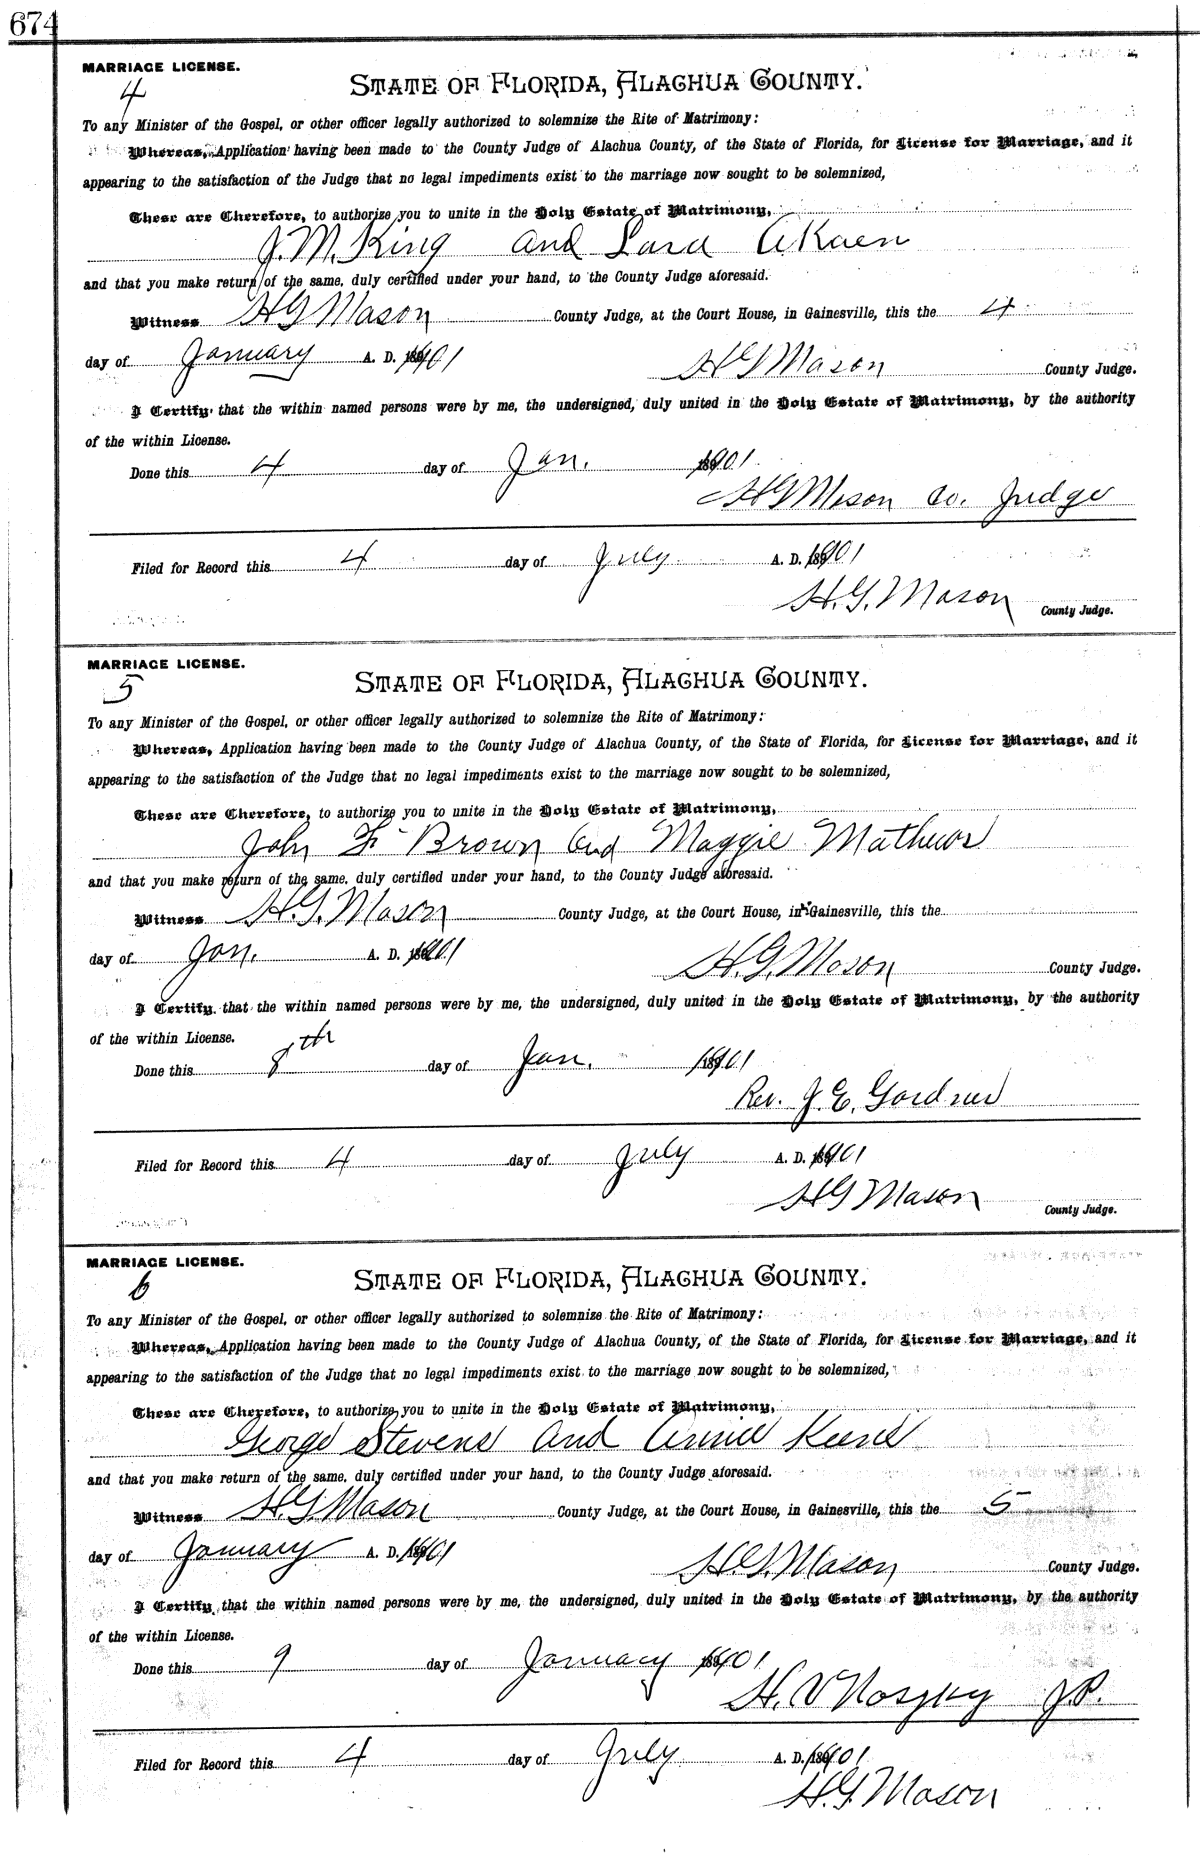 674
MARRIAGE LICENSE.
4
STATE OF FLORIDA, ALACHUA COUNTY.
To any Minister of the Gospel, or other officer legally authorized to solemnize the Rite of Matrimony:
Whereas, Application having been made to the County Judge of Alachua County, of the State of Florida, for License for Marriage, and it
appearing to the satisfaction of the Judge that no legal impediments exist to the marriage now sought to be solemnized,
These are Therefore, to authorize you to unite in the Holy Estate of Matrimony,
J. M. King and
and that you make return of the same, duly certified under your hand, to the County Judge aforesaid.
Witness H G Mason County Judge, at the Court House, in Gainesville, this the 4
day of January A. D. 1901 H G Mason County Judge.
I Certify that the within named persons were by me, the undersigned, duly united in the Holy Estate of Matrimony, by the authority
of the within License.
Done this 4 day of Jan. 1901
H G Mason Co. Judge
Filed for Record this 4 day of July A. D. 1901
H. G. Mason County Judge.
MARRIAGE LICENSE.
5
STATE OF FLORIDA, ALACHUA COUNTY.
To any Minister of the Gospel, or other officer legally authorized to solemnize the Rite of Matrimony:
Whereas, Application having been made to the County Judge of Alachua County, of the State of Florida, for License for Marriage, and it
appearing to the satisfaction of the Judge that no legal impediments exist to the marriage now sought to be solemnized,
These are Therefore, to authorize you to unite in the Holy Estate of Matrimony,
John F Brown and Maggie Mathews
and that you make return of the same, duly certified under your hand, to the County Judge aforesaid.
Witness H. G. Mason County Judge, at the Court House, in Gainesville, this the
day of Jan. A. D. 1901 H. G. Mason County Judge.
I Certify that the within named persons were by me, the undersigned, duly united in the Holy Estate of Matrimony, by the authority
of the within License.
Done this 8th day of Jan. 1901
Rev. J. E. Gardner
Filed for Record this 4 day of July A. D. 1901
H G Mason County Judge.
MARRIAGE LICENSE.
6
STATE OF FLORIDA, ALACHUA COUNTY.
To any Minister of the Gospel, or other officer legally authorized to solemnize the Rite of Matrimony:
Whereas, Application having been made to the County Judge of Alachua County, of the State of Florida, for License for Marriage, and it
appearing to the satisfaction of the Judge that no legal impediments exist to the marriage now sought to be solemnized,
These are Therefore, to authorize you to unite in the Holy Estate of Matrimony,
George Stevens and Annie
and that you make return of the same, duly certified under your hand, to the County Judge aforesaid.
Witness H. G. Mason County Judge, at the Court House, in Gainesville, this the 5
day of January A. D. 1901 H. G. Mason County Judge.
I Certify that the within named persons were by me, the undersigned, duly united in the Holy Estate of Matrimony, by the authority
of the within License.
Done this 9 day of January 1901
H. V J.P.
Filed for Record this 4 day of July A. D. 1901
H. G. Mason